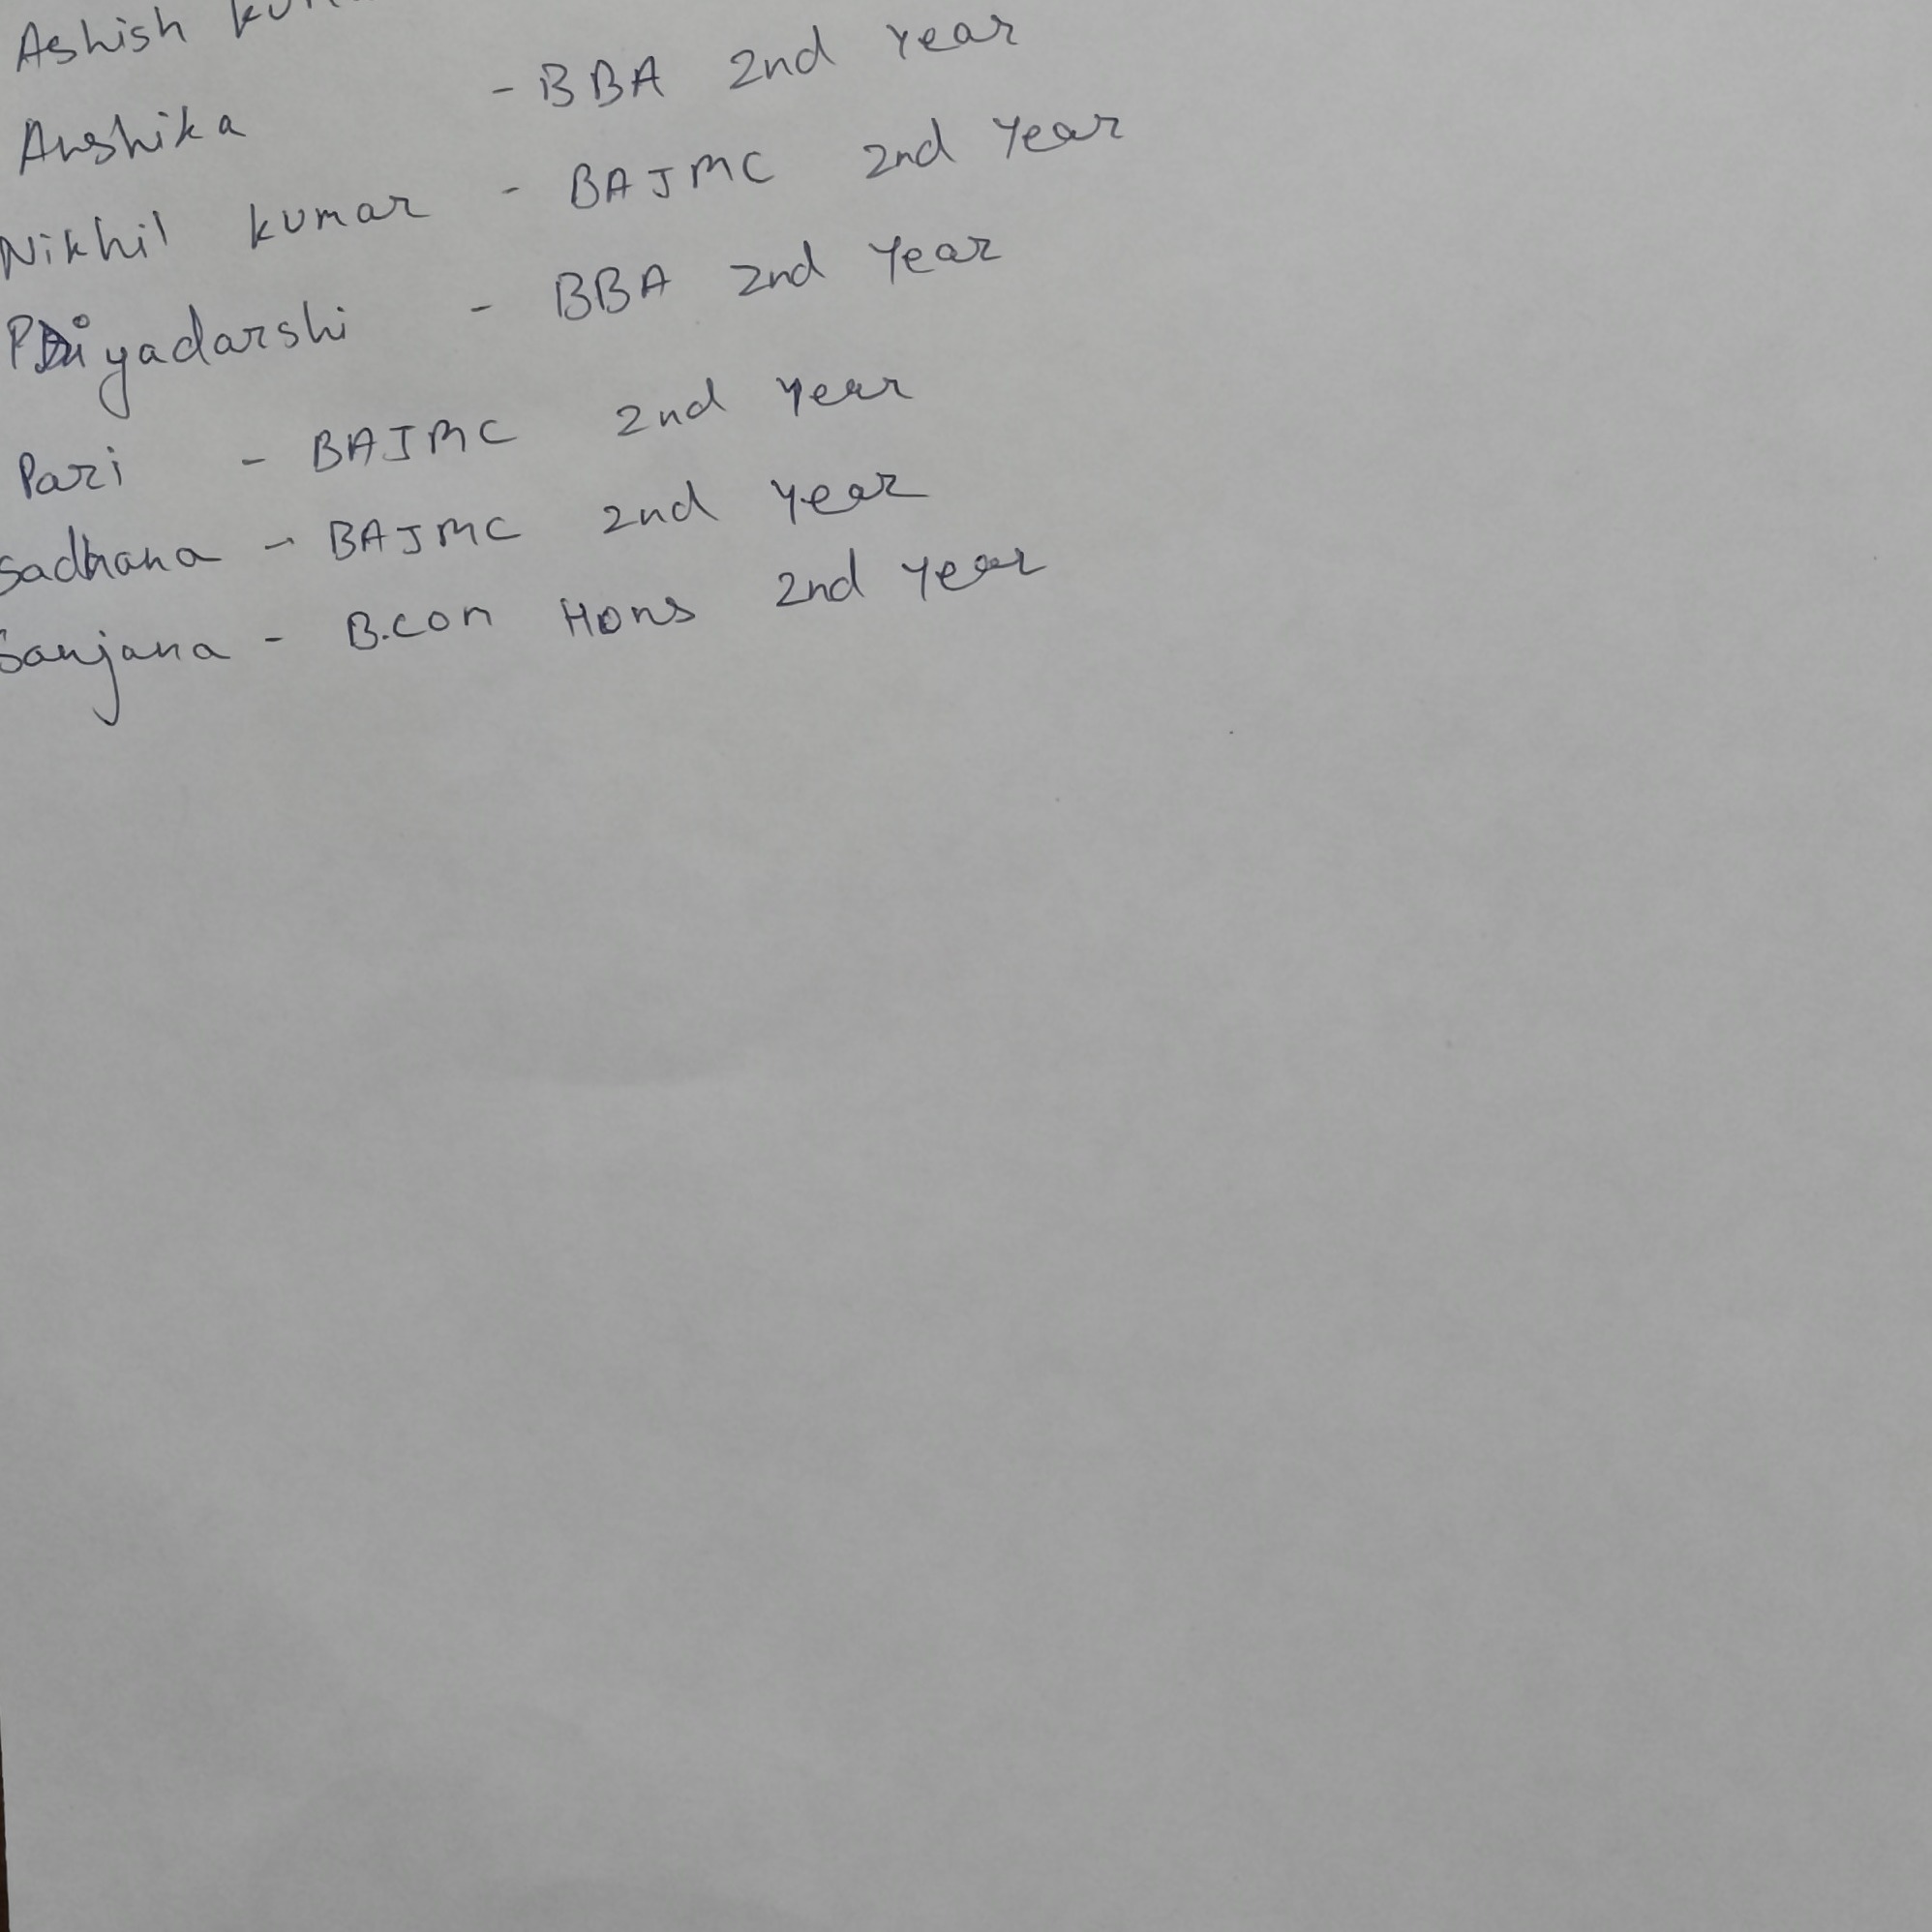 Ashish
Anshika - BBA 2nd Year
Nikhil kumar - BAJMC 2nd Year
Priyadarshi - BBA 2nd Year
Pari - BAJMC 2nd Year
Sadhana - BAJMC 2nd Year
Sanjana - B.com Hons 2nd Year